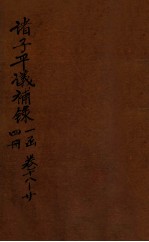 諸子平議補錄
一函四冊
卷十八—廿